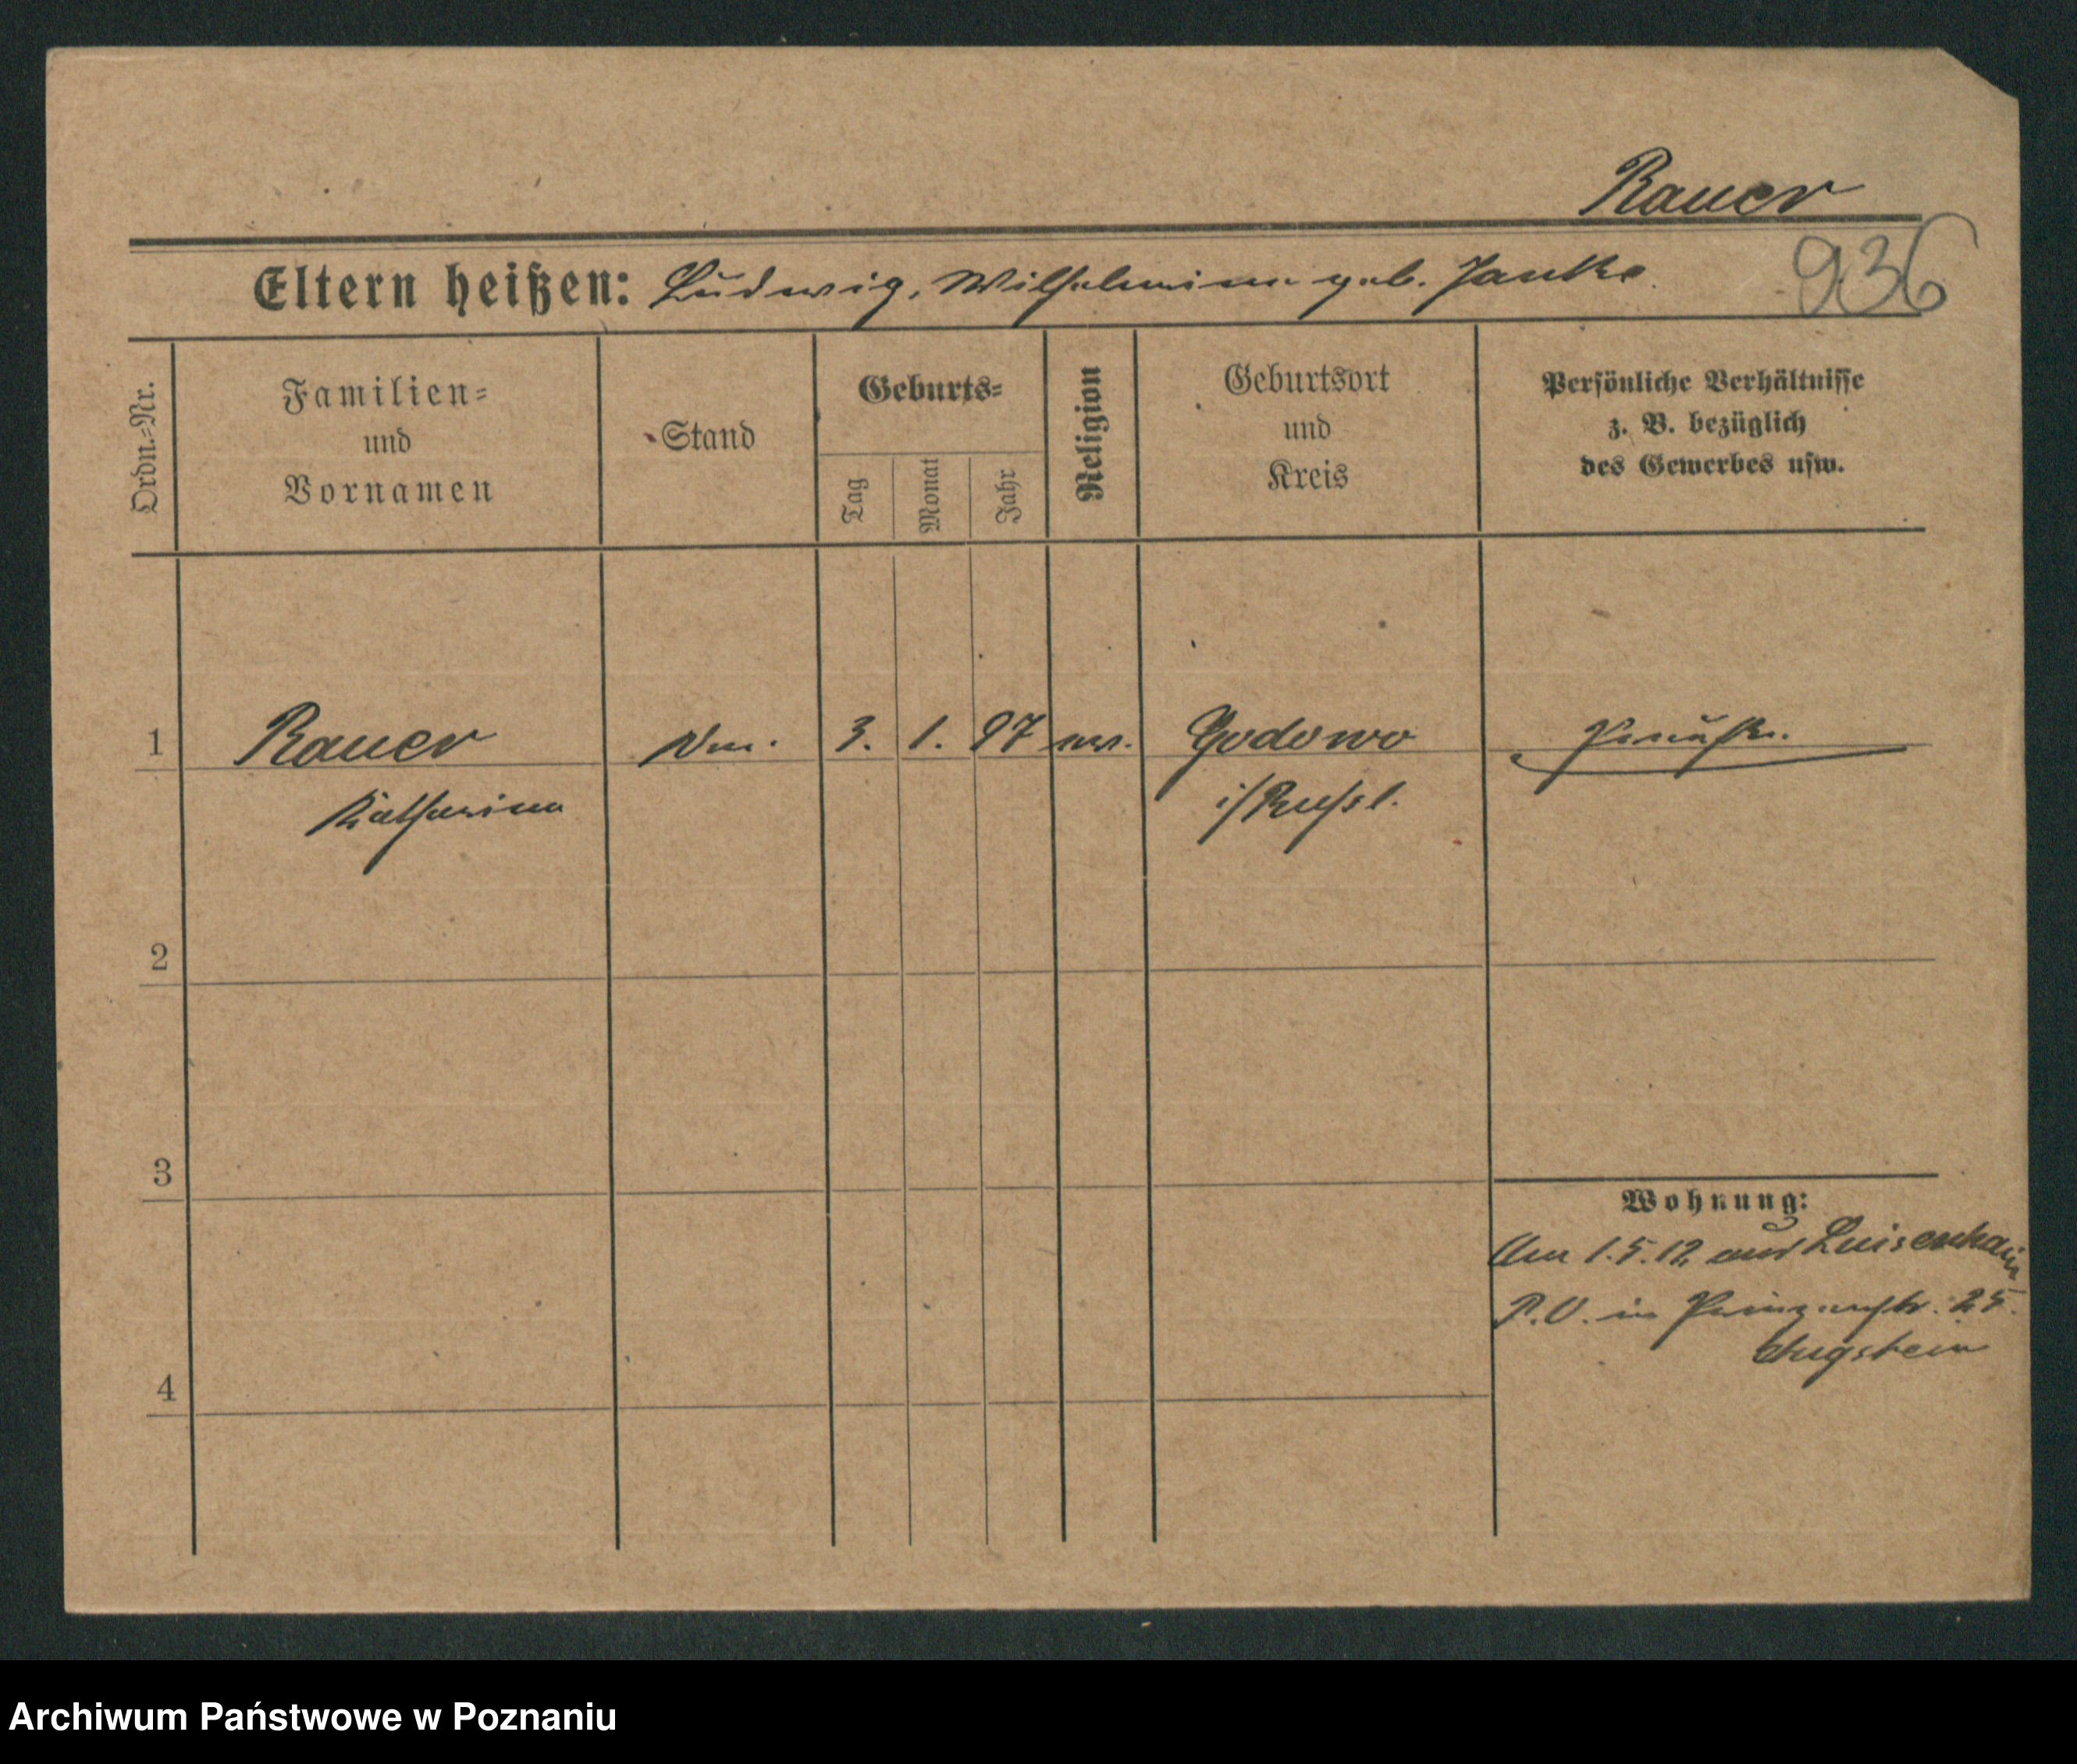 Rauer
Eltern heißen: Ludwig, Wilhelmine geb. Janke
936
Ordn.=Nr.
Familien=
und
Vornamen
Stand
Geburts=
Tag
Monat
Jahr
Religion
Geburtsort
und
Kreis
Persönliche Verhältnisse
z. B. bezüglich
des Gewerbes usw.
1 Rauer 3. 1. 97 Godowo
Katharina i/Russl.
2
3
Wohnung:
Am 1.5.12 aus Luisenhain
P.V. in Prinzenstr. 25.
Augstein
4
Archiwum Państwowe w Poznaniu